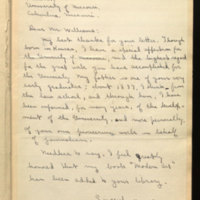 University of Missouri,
Columbia, Missouri.
Dear Mr. Williams:
My best thanks for your letter. Though
born in Kansas, I have a special affection for
the University of Missouri, and the highest regard
for the great work you have accomplished
the University. My father is one of your very
early graduates, about 1877, I think, from
the law school, and through him, I have
been informed, for many years, of the develop-
ment of the University, and more personally,
of your own pioneering work in behalf
of journalism.
Needless to say, I feel greatly
honored that my book "Modern Art"
has been added to your library.